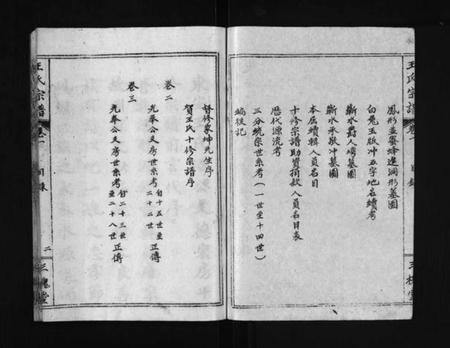 王氏宗譜
卷一
目錄
三槐堂
鳳形並蜜蜂進洞形墓圖
白兔王畈冲五字地名續考
蘄水爵人塆墓圖
蘄水承畈冲墓圖
本届續輯人員名目
十修宗譜助資捐款人員名目表
歷代源流考
三分統宗世系考（一世至十四世）
編後記
督修象坤先生序
賀王氏十修宗譜序
卷二
光奉公文房世系考 自十五世至二十二世 正傳
卷三
光奉公文房世系考 自二十三世至二十八世 正傳
王氏宗譜
卷一
目錄
二
三槐堂